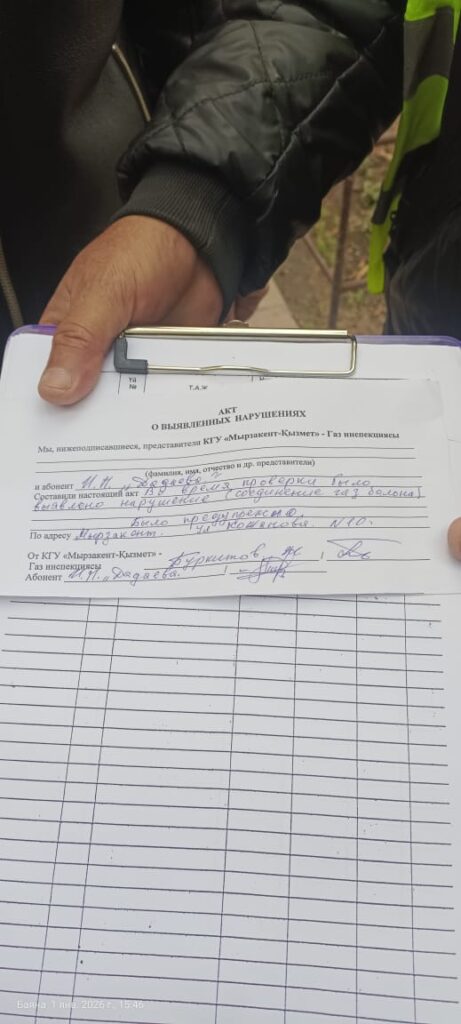 Т.А.Ж
АКТ
О ВЫЯВЛЕННЫХ НАРУШЕНИЯХ
Мы, нижеподписавшиеся, представители КГУ «Мырзакент-Қызмет» - Газ инспекциясы
(фамилия, имя, отчество и др. представители)
и абонент И.П. „Дадаева"
Составили настоящий акт Во время проверки было
выявлено нарушение (соединение газ балона)
Было предупрежено.
По адресу Мырзакент. ул Кожанова. N10.
От КГУ «Мырзакент-Қызмет» -
Газ инспекциясы Буркитов /
Абонент И.П. „Дадаева. /
Баяна 1 янв. 2026 г., 15:46